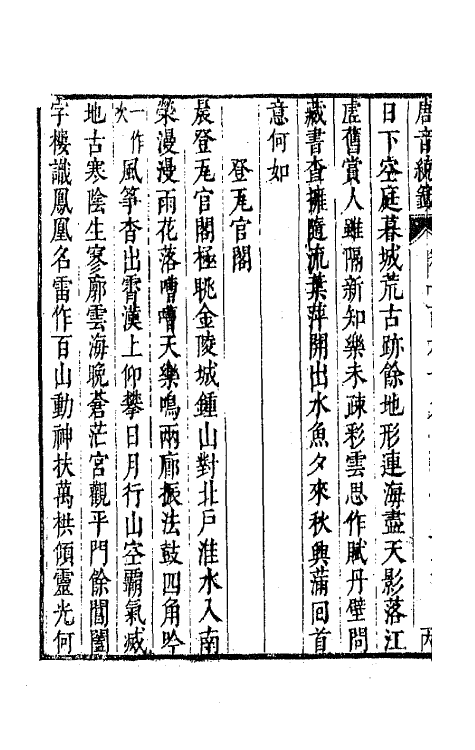 唐音統籤
日下空庭暮城荒古跡餘地形連海盡天影落江
虛舊賞人雖隔新知樂未疎彩雲思作賦丹壁問
藏書查擁隨流葉萍開出水魚夕來秋興滿回首
意何如
登瓦官閣
晨登瓦官閣極眺金陵城鍾山對北戶淮水入南
榮漫漫雨花落嘈嘈天樂鳴兩廊振法鼓四角吟
一作次風箏杳出霄漢上仰攀日月行山空霸氣滅
地古寒陰生寥廓雲海晚蒼茫宮觀平門餘閶闔
字樓識鳳凰名雷作百山動神扶萬栱傾靈光何